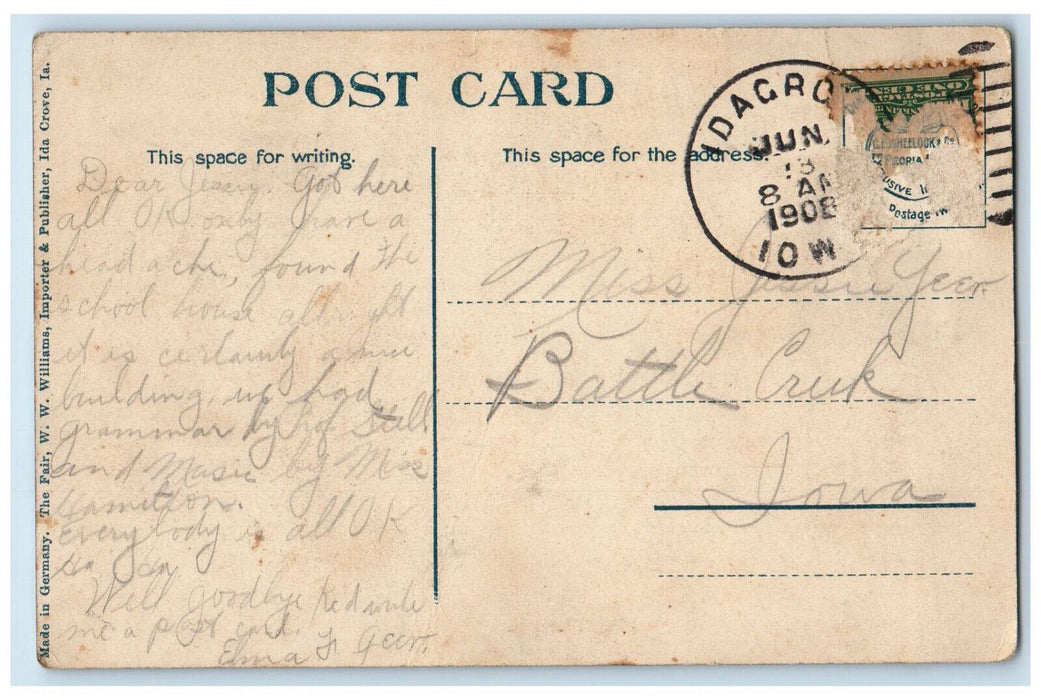 POST CARD
This space for writing.
This space for the address.
IDAGRO
JUN
8 AM
1908
IOW
PEORIA
Postage
Dear Jessey. Got here
all OK only have a
headache, found the
school house allright
it is certainly a nice
building, we had
grammar by Stell
and Music by Miss
Hamilton.
Everybody is all OK
Well goodbye Red write
me a post card.
Elma F. Geer.
Miss Jessie Geer.
Battle Creek
Iowa
Made in Germany. The Fair, W. W. Williams, Importer & Publisher, Ida Grove, Ia.